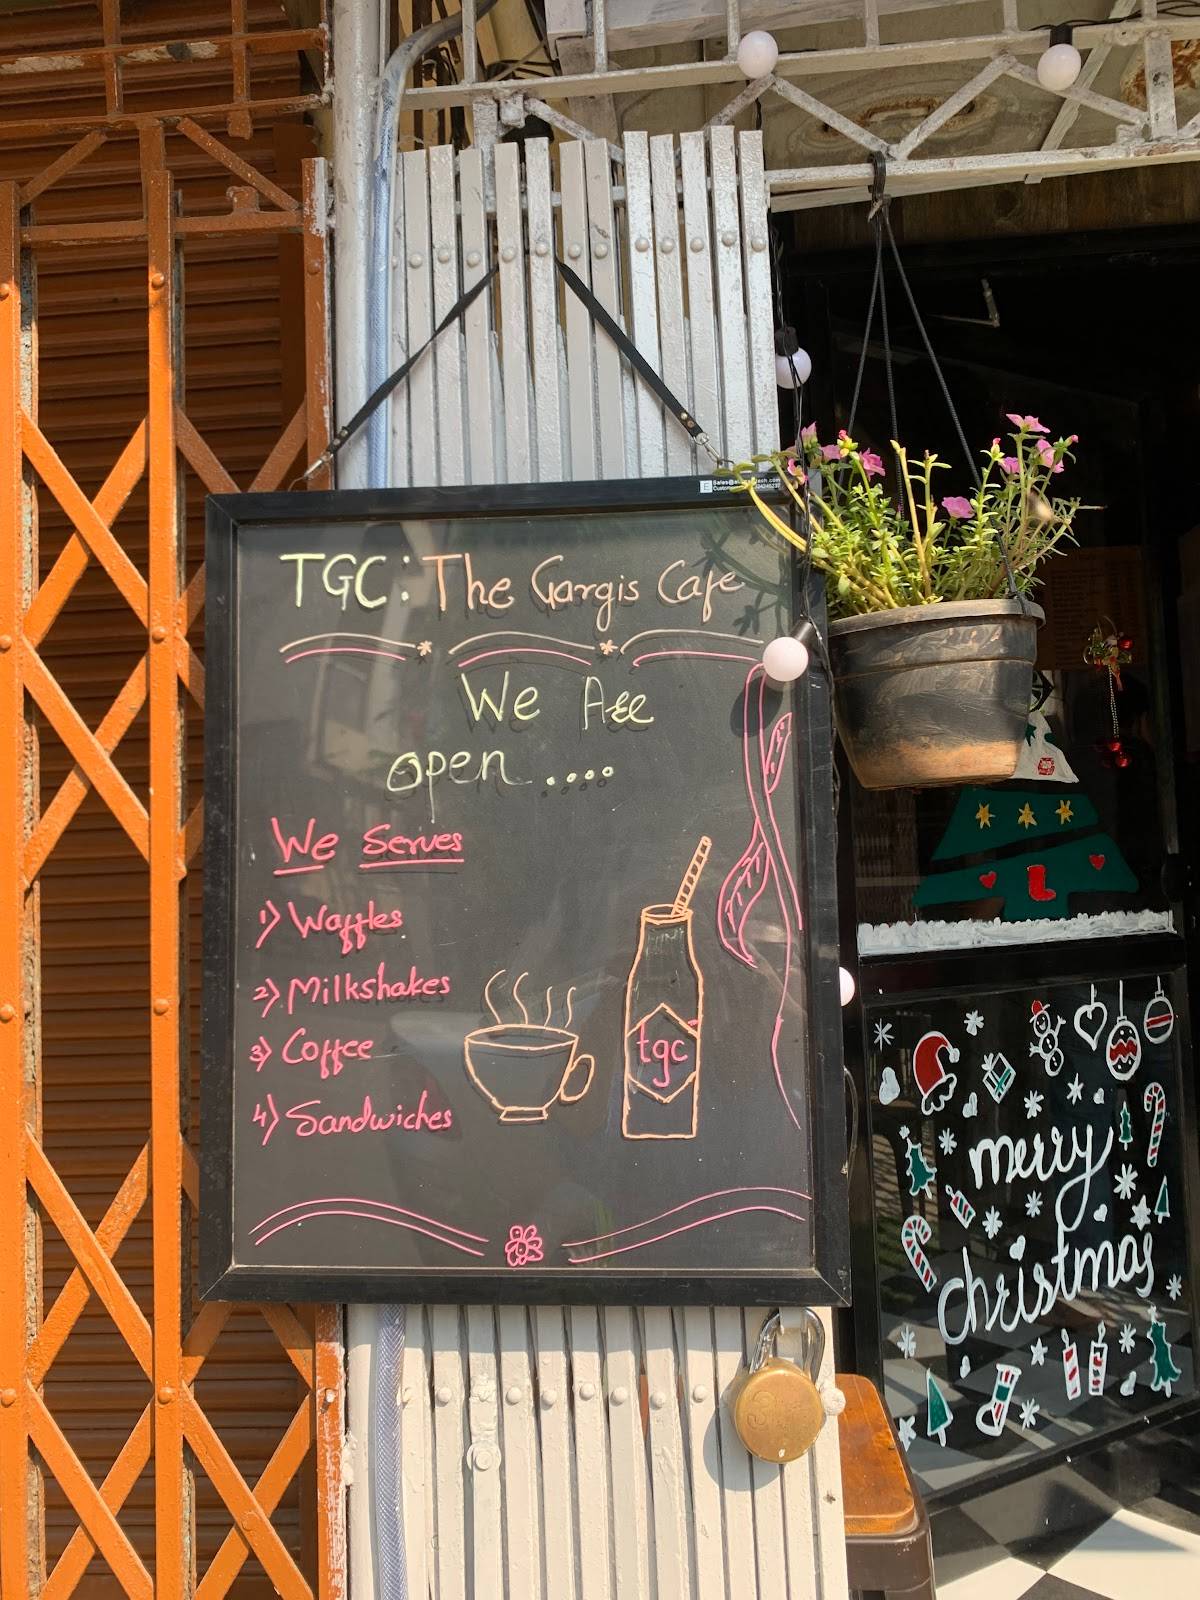 TGC: The Gargis Cafe
We Are
open ....
We Serves
1) Waffles
2) Milkshakes
3) Coffee
4) Sandwiches
tgc
merry
christmas